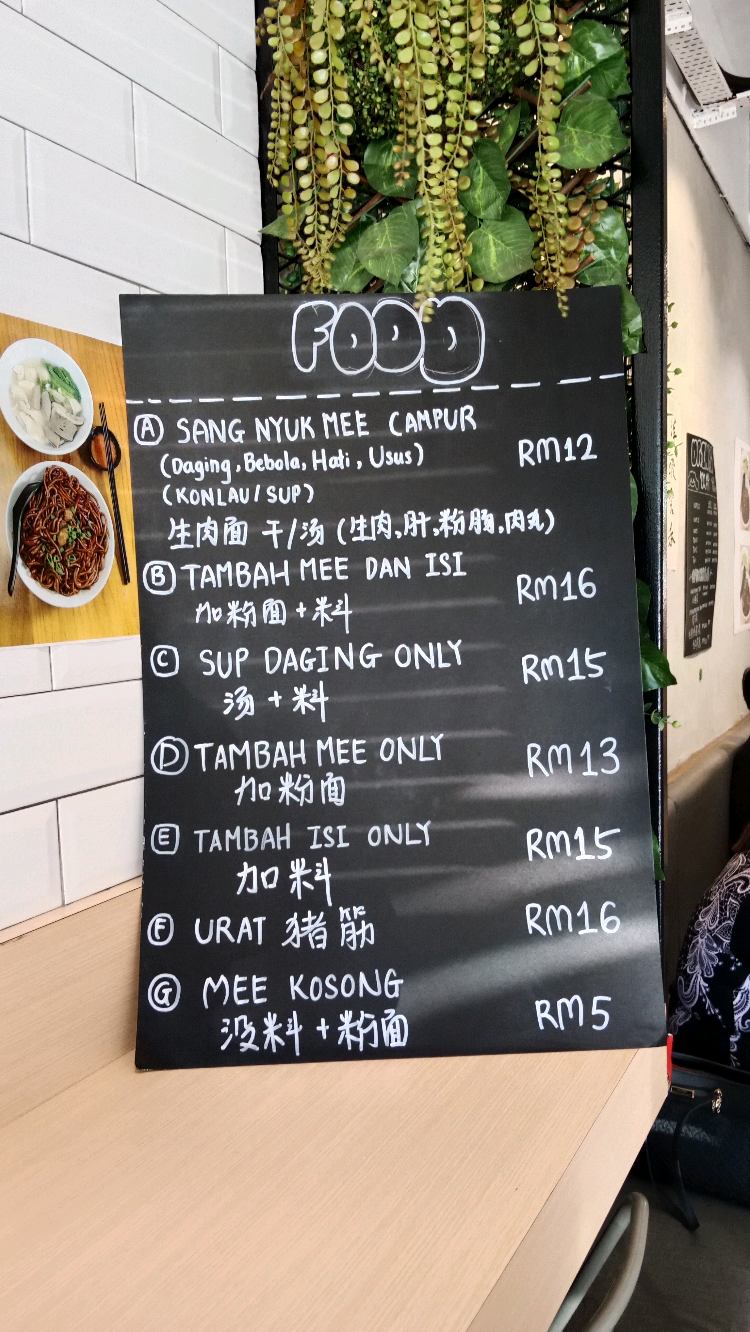 FOOD
Ⓐ SANG NYUK MEE CAMPUR
(Daging, Bebola, Hati, Usus) RM12
(KONLAU/SUP)
生肉面 干/汤 (生肉,肝,粉肠,肉丸)
Ⓑ TAMBAH MEE DAN ISI RM16
加粉面+料
Ⓒ SUP DAGING ONLY RM15
汤+料
Ⓓ TAMBAH MEE ONLY RM13
加粉面
Ⓔ TAMBAH ISI ONLY RM15
加料
Ⓕ URAT 猪筋 RM16
Ⓖ MEE KOSONG RM5
没料+粉面